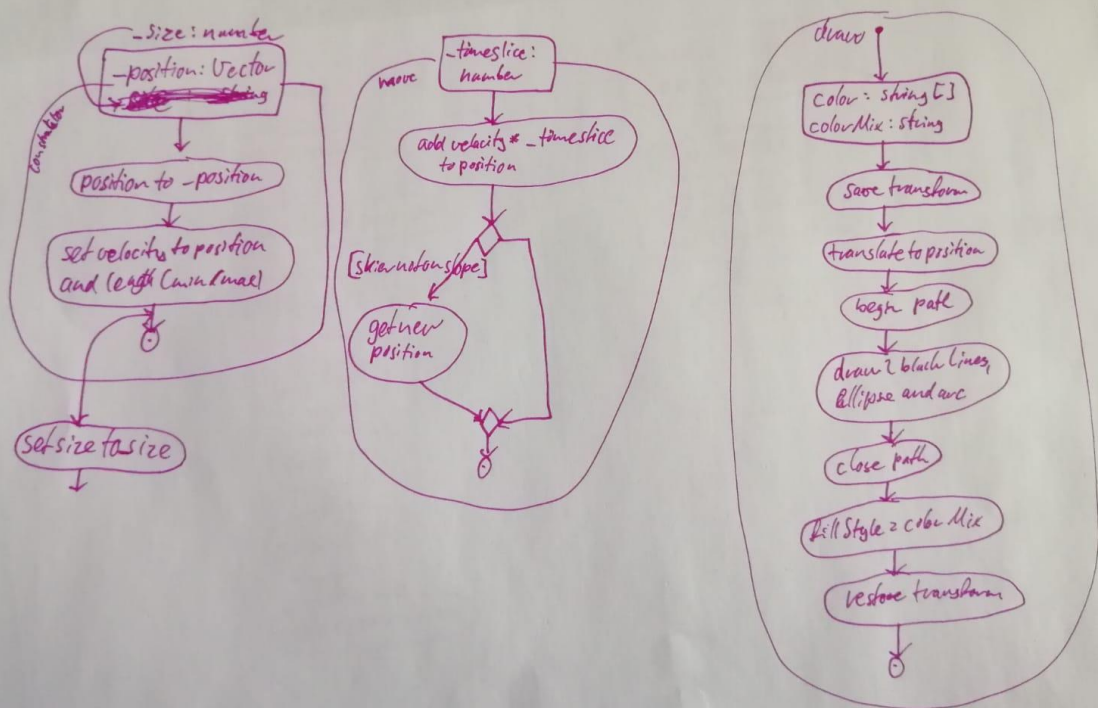 _size: number
_position: Vector
constructor
position to _position
set velocity to position
and length (min/max)
set size to size
_timeslice:
number
move
add velocity * _timeslice
to position
[skier not on slope]
get new
position
draw
color: string[]
colorMix: string
save transform
translate to position
begin path
draw 2 black lines,
Ellipse and arc
close path
fillStyle = colorMix
restore transform